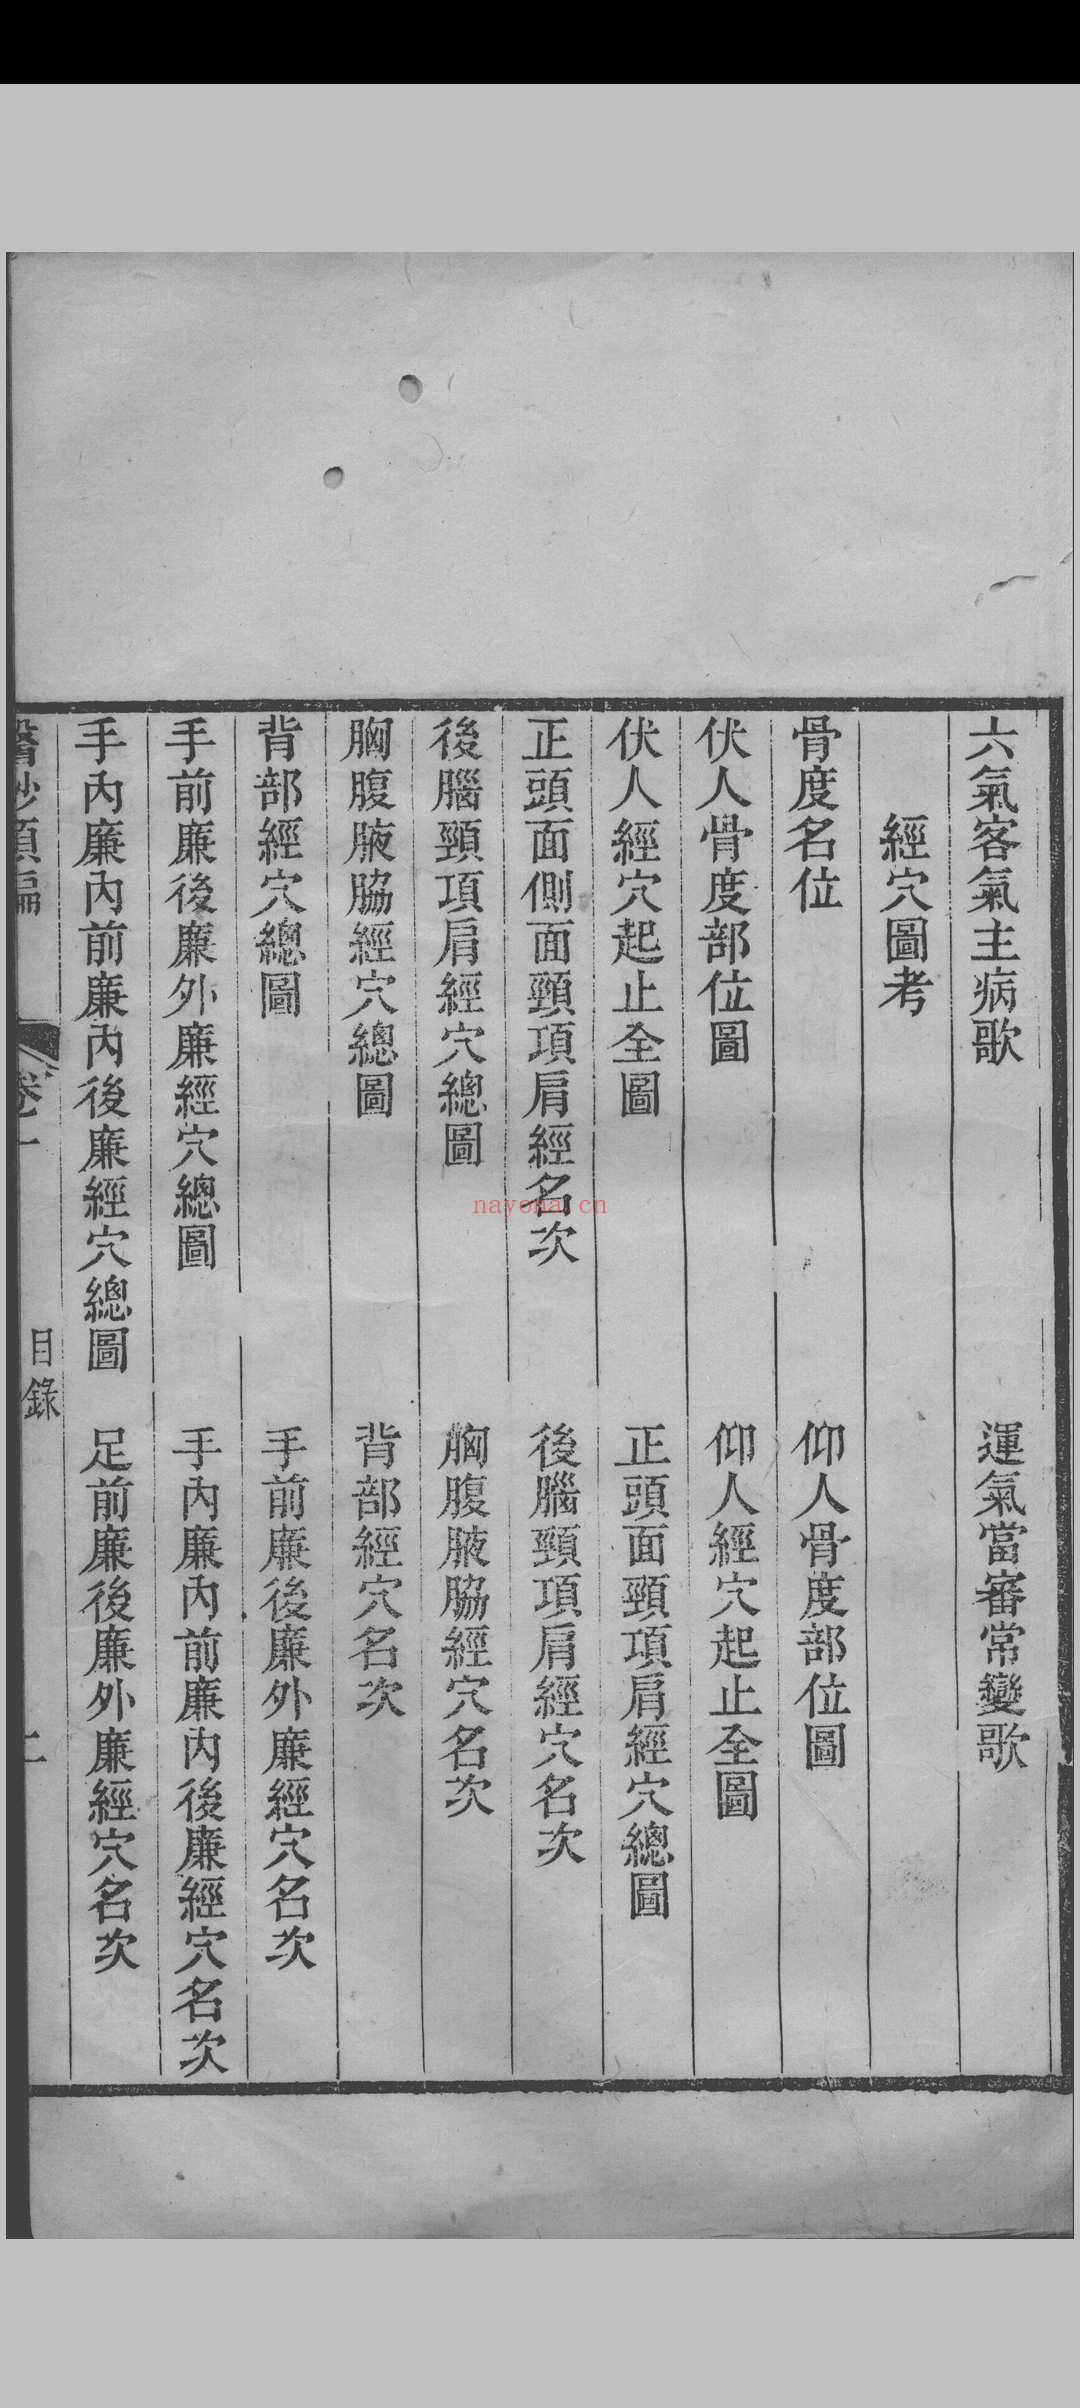 六氣客氣主病歌　運氣當審常變歌
經穴圖考
骨度名位　仰人骨度部位圖
伏人骨度部位圖　仰人經穴起止全圖
伏人經穴起止全圖　正頭面頸項肩經穴總圖
正頭面側面頸項肩經名次　後腦頸項肩經穴名次
後腦頸項肩經穴總圖　胸腹腋脇經穴名次
胸腹腋脇經穴總圖　背部經穴名次
背部經穴總圖　手前廉後廉外廉經穴名次
手前廉後廉外廉經穴總圖　手內廉內前廉內後廉經穴名次
手內廉內前廉內後廉經穴總圖　足前廉後廉外廉經穴名次
目錄　二
nayona.cn